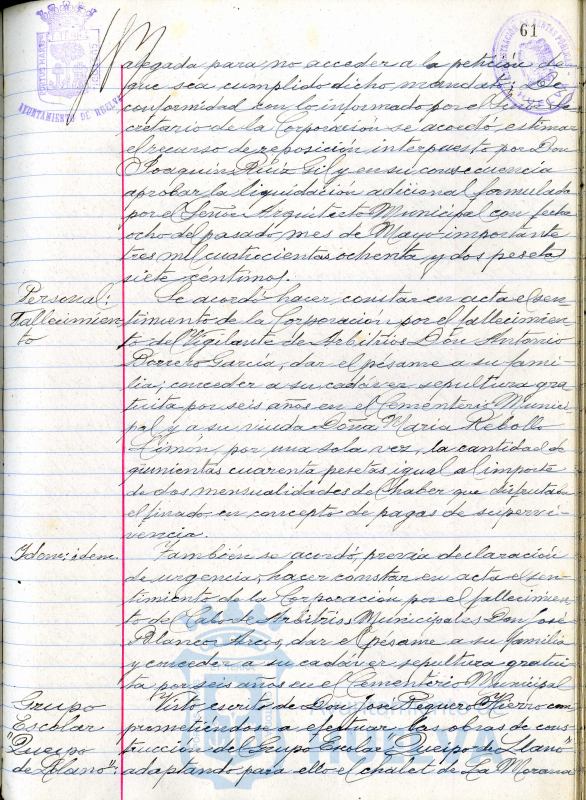 61
AYUNTAMIENTO DE HUELVA
alegada para no acceder a la petición de
que sea cumplido dicho mandato. De
conformidad con lo informado por el Se-
cretario de la Corporación se acordó estimar
el recurso de reposición interpuesto por Don
Joaquín Ruiz Gil y en su consecuencia
aprobar la liquidación adicional formulada
por el Señor Arquitecto Municipal con fecha
ocho del pasado mes de Mayo importante
tres mil cuatrocientas ochenta y dos pesetas
siete céntimos.
Personal:
Fallecimien-
to
Se acordó hacer constar en acta el sen-
timiento de la Corporación por el fallecimien-
to del Vigilante de Arbitrios Don Antonio
Borrero García, dar el pésame a su fami-
lia; conceder a su cadáver sepultura gra-
tuita por seis años en el Cementerio Munici-
pal y a su viuda Doña María Rebollo
Limón, por una sola vez, la cantidad de
quinientas cuarenta pesetas, igual al importe
de dos mensualidades del haber que disfrutaba
el finado en concepto de pagas de supervi-
vencia.
Idem: idem.
También se acordó previa declaración
de urgencia, hacer constar en acta el sen-
timiento de la Corporación por el fallecimien-
to del Cabo de Arbitrios Municipales Don José
Blanco Arcos, dar el pesame a su familia
y conceder a su cadáver sepultura gratui-
ta por seis años en el Cementerio Municipal
Grupo
Escolar
"Queipo
de Llano":
Visto escrito de Don José Peguero Hierro com
prometiéndose a efectuar las obras de cons-
trucción del Grupo Escolar "Queipo de Llano"
adaptando para ello el chalet de La Morana
HUELVA